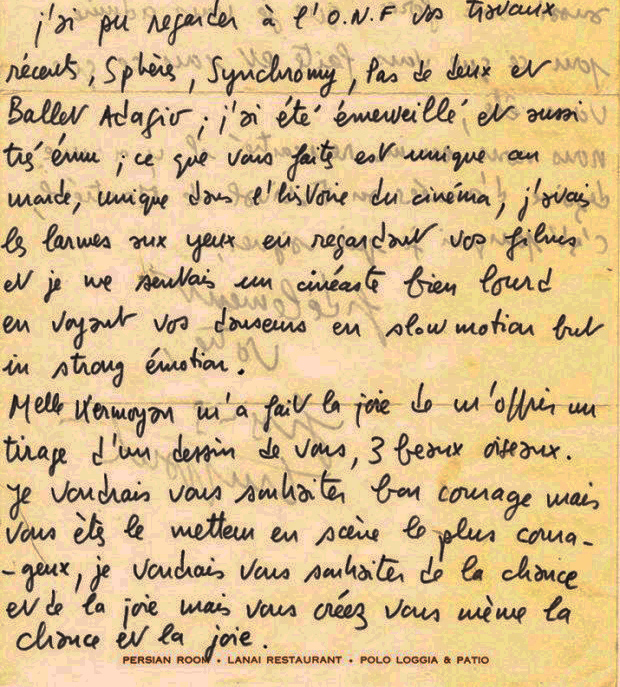 j'ai pu regarder à l'O.N.F vos travaux
récents, Sphères, Synchromy, Pas de deux et
Ballet Adagio ; j'ai été émerveillé et aussi
très ému ; ce que vous faites est unique au
monde, unique dans l'histoire du cinéma, j'avais
les larmes aux yeux en regardant vos films
et je me sentais un cinéaste bien lourd
en voyant vos danseurs en slow motion but
in strong émotion.
Melle Kermoyan m'a fait la joie de m'offrir un
tirage d'un dessin de vous, 3 beaux oiseaux.
Je voudrais vous souhaiter bon courage mais
vous êtes le metteur en scène le plus coura-
-geux, je voudrais vous souhaiter de la chance
et de la joie mais vous créez vous même la
chance et la joie.
PERSIAN ROOM • LANAI RESTAURANT • POLO LOGGIA & PATIO